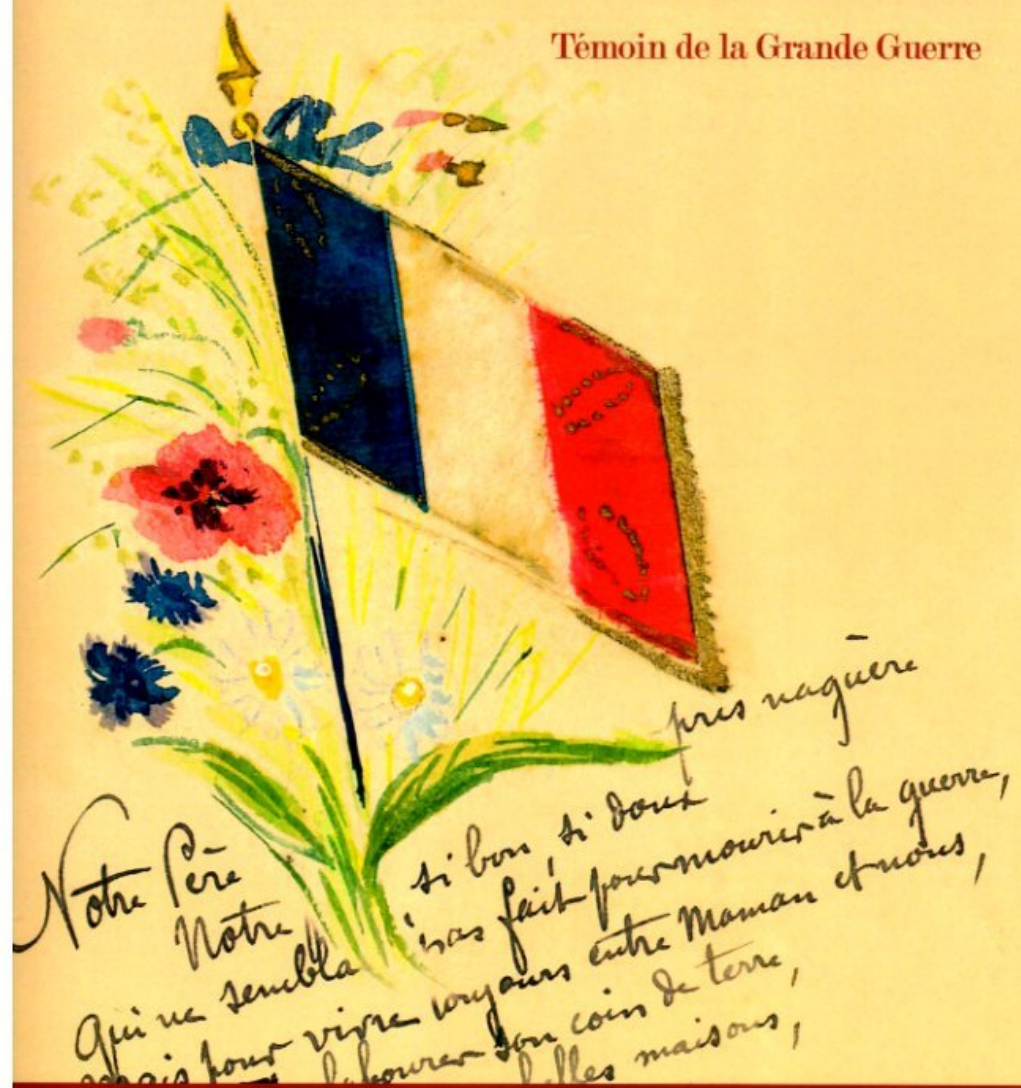 Témoin de la Grande Guerre
Notre Père pris naguère
Notre si bon, si doux
Qui ne sembla pas fait pour mourir à la guerre,
mais pour vivre toujours entre Maman et nous,
labourer son coin de terre,
belles maisons,